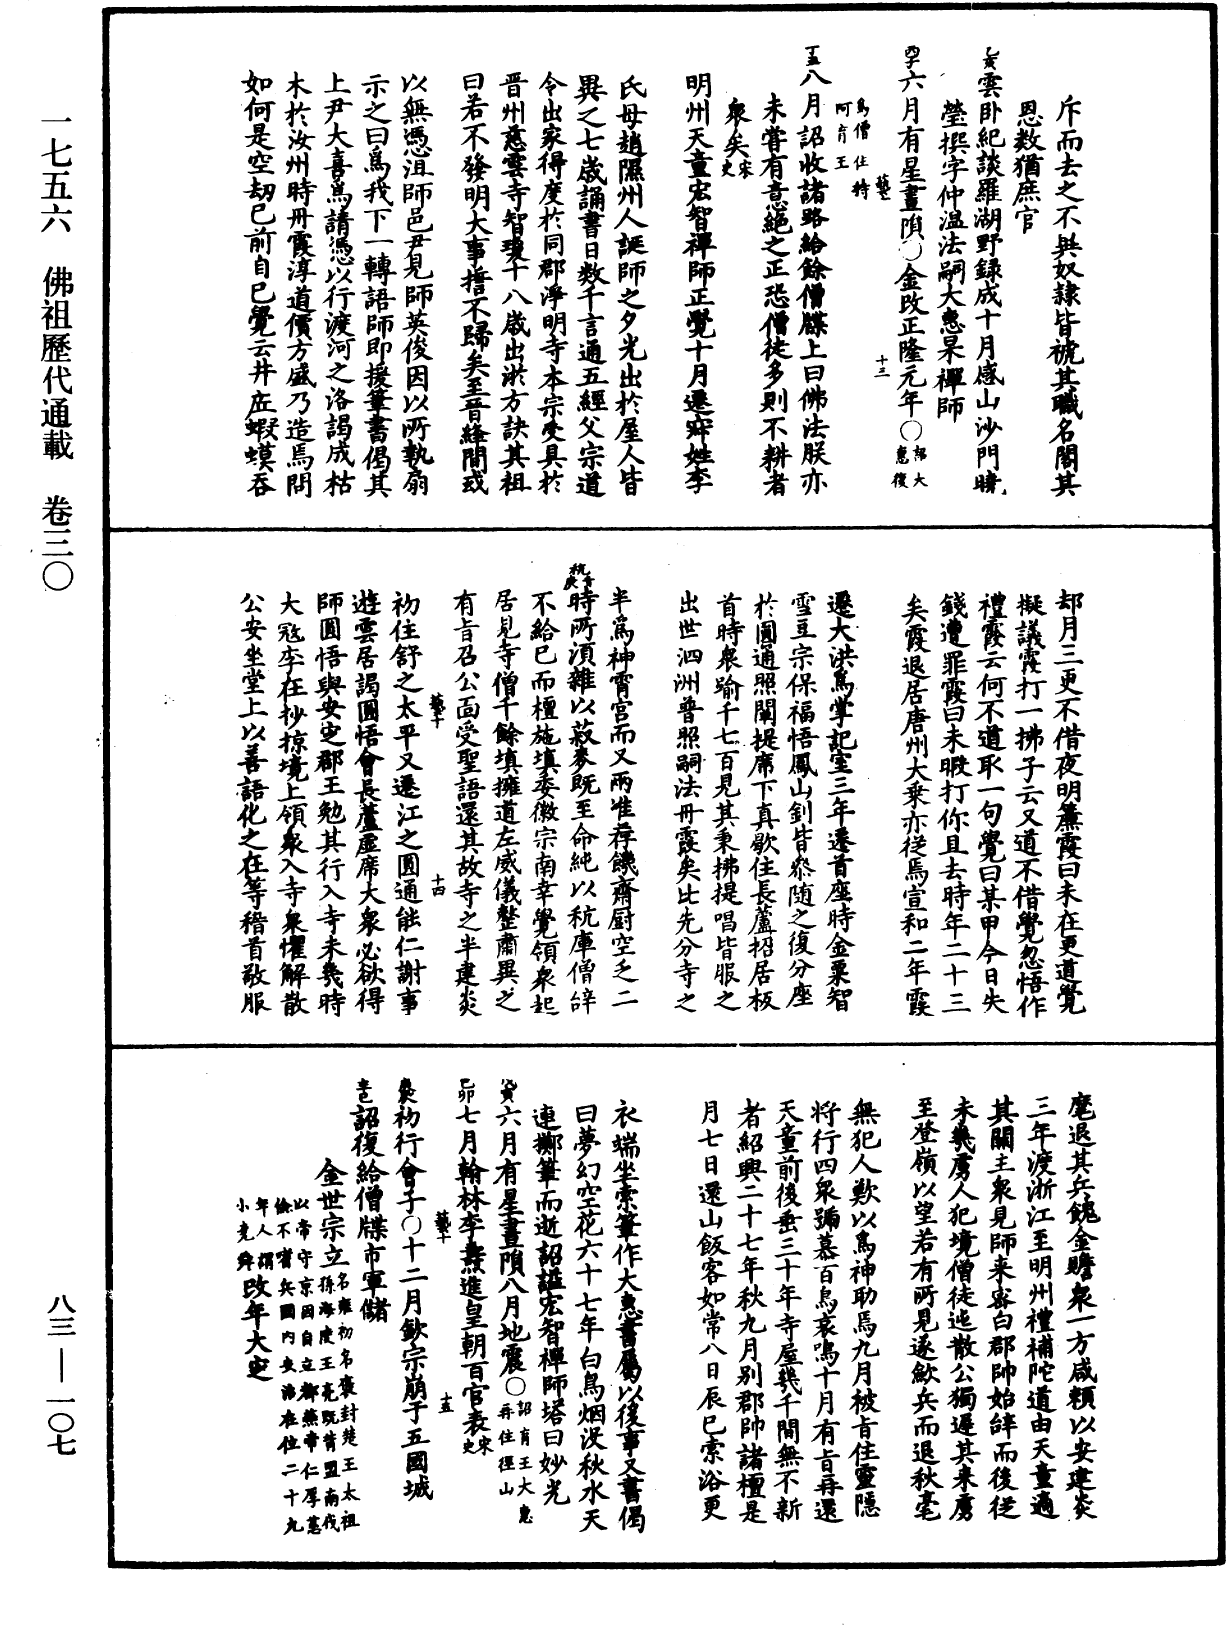 一七五六　佛祖歷代通載　卷三〇
八三—一〇七
斥而去之不與奴隷皆視其職名閣其
恩数猶庶官
乙亥雲卧紀談羅湖野録成十月感山沙門曉
瑩撰字仲温法嗣大惠杲禪師
六月有星晝隕○金改正隆元年○詔大惠復
爲僧住持阿育王
藝
十三
丁丑八月詔收諸路給餘僧牒上曰佛法朕亦
未嘗有意絶之正恐僧徒多則不耕者
衆矣宋史
明州天童宏智禪師正覺十月遷寂姓李
氏母趙隰州人誕師之夕光出於屋人皆
異之七歲誦書日数千言通五經父宗道
令出家得度於同郡淨明寺本宗受具於
晉州慈雲寺智瓊十八歲出遊方訣其祖
曰若不發明大事誓不歸矣至晉絳間或
以無憑沮師邑尹見師英俊因以所執扇
示之曰爲我下一轉語師即援筆書偈其
上尹大喜爲請憑以行渡河之洛謁成枯
木於汝州時丹霞淳道價方盛乃造焉問
如何是空劫已前自己覺云井底蝦蟆吞
却月三更不借夜明簾霞曰未在更道覺
擬議霞打一拂子云又道不借覺忽悟作
禮霞云何不道取一句覺曰某甲今日失
錢遭罪霞曰未暇打你且去時年二十三
矣霞退居唐州大乗亦從焉宣和二年霞
遷大洪爲掌記室三年遷首座時金粟智
雪豆宗保福悟鳳山釗皆叅随之復分座
於圓通照闡提席下真歇住長蘆招居板
首時衆踰千七百見其秉拂提唱皆服之
出世泗洲普照嗣法丹霞矣比先分寺之
半爲神霄宮而又兩淮荐饑齋厨空乏二
時所湏雜以菽麥既至命純以秔庫僧辝
秔音庚
不給已而檀施填委徽宗南幸覺領衆起
居見寺僧千餘填擁道左威儀整肅異之
有旨召公面受聖語還其故寺之半建炎
藝十
十四
初住舒之太平又遷江之圓通能仁謝事
遊雲居謁圓悟會長蘆虚席大衆必欲得
師圓悟與安定郡王勉其行入寺未幾時
大寇李在抄掠境上領衆入寺衆懼解散
公安坐堂上以善語化之在等稽首敬服
麾退其兵餽金贍衆一方咸頼以安建炎
三年渡浙江至明州禮補陀道由天童適
其闕主衆見師来密白郡帥始辝而後從
未幾虜人犯境僧徒迯散公獨遲其来虜
至登嶺以望若有所見遂歛兵而退秋毫
無犯人歎以爲神助焉九月被旨住靈隱
将行四衆踊慕百鳥哀鳴十月有旨再還
天童前後垂三十年寺屋幾千間無不新
者紹興二十七年秋九月别郡帥諸檀是
月七日還山飯客如常八日辰巳索浴更
衣端坐索筆作大惠書屬以後事又書偈
曰夢幻空花六十七年白鳥烟没秋水天
連擲筆而逝詔謚宏智禪師塔曰妙光
戊寅六月有星晝隕八月地震○詔育王大惠再住徑山
己卯七月翰林李燾進皇朝百官表宋史
藝十
十五
庚辰初行會子○十二月欽宗崩于五國城
辛巳詔復給僧牒市軍儲
金世宗立名雍初名褎封楚王太祖孫海陵王亮既背盟南伐以帝守京因自立都燕帝仁厚慈儉不嗜兵國内安治在位二十九年人謂小堯舜改年大定